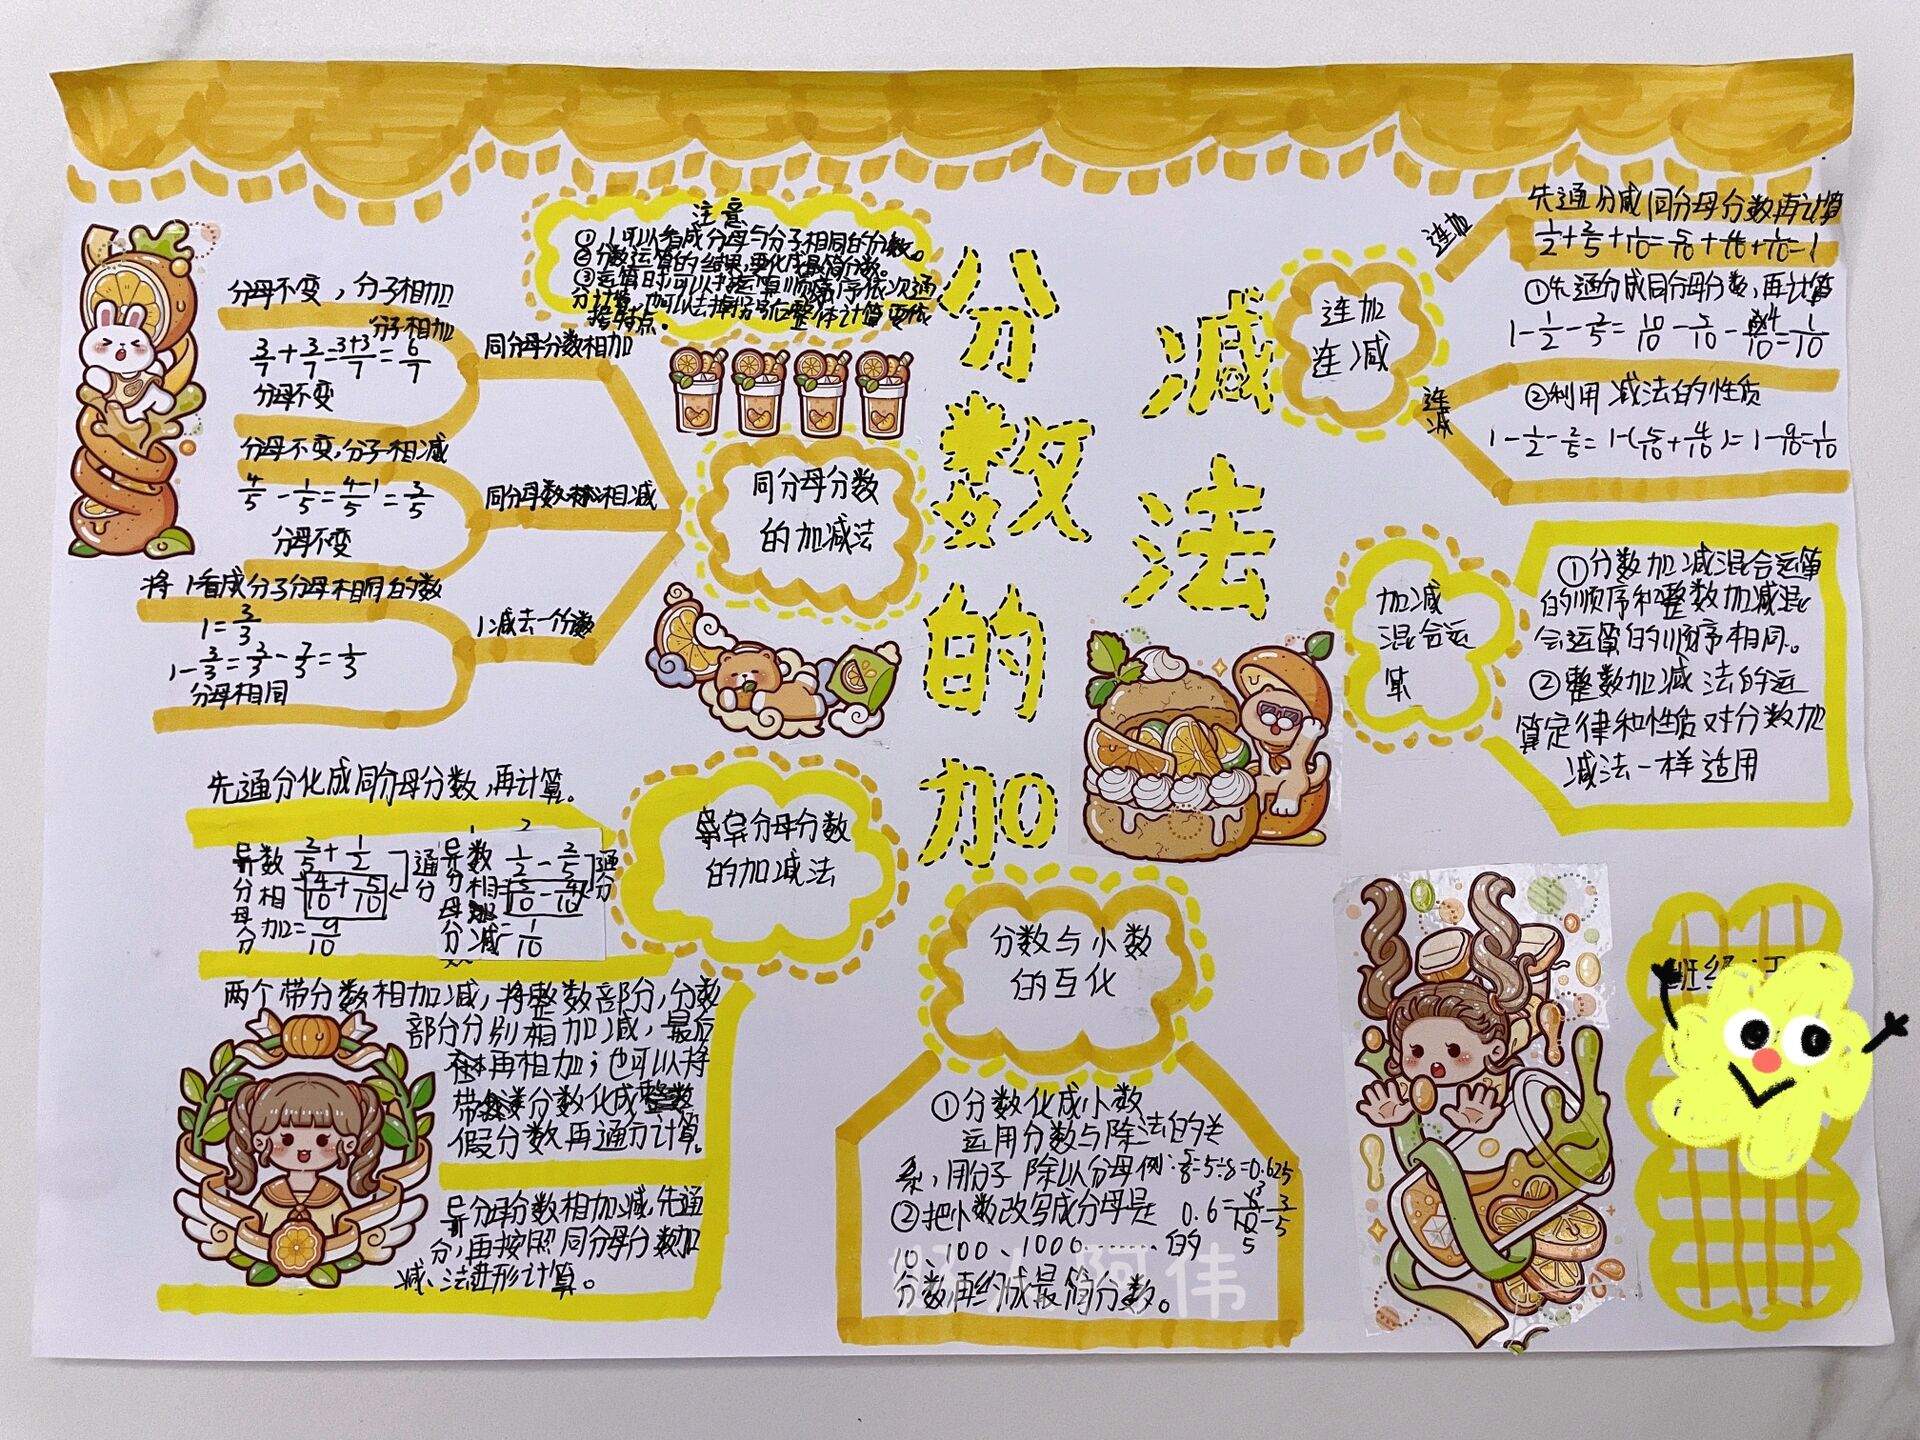 分数的加
减法
注意
① 1可以看成分母与分子相同的分数。
②分数运算的结果,要化成最简分数。
③运算时,可以按运算顺序依次通
分计算,也可以去掉括号后整体计算要依
据特点。
同分母分数
的加减法
同分母分数相加
分母不变，分子相加
分子相加
3/7+3/7=3+3/7=6/7
分母不变
同分母数相减
分母不变,分子相减
4/5-1/5=4-1/5=3/5
分母不变
1减去一个分数
将1看成分子分母相同的数
1=3/3
分母相同
异分母分数
的加减法
先通分化成同分母分数,再计算。
异分母分数相加
2/5+1/2
=4/10+5/10
=9/10
通分
异分母分数相减
1/2-2/5
=5/10-4/10
=1/10
通分
两个带分数相加减,将整数部分,分数
部分分别相加减,最后
再相加;也可以将
带分数化成
假分数再通分计算。
异分母分数相加减,先通
分,再按照同分母分数加
减法进形计算。
分数与小数
的互化
①分数化成小数
运用分数与除法的关
系,用分子除以分母例:5/8=5÷8=0.625
②把小数改写成分母是 0.6=6/10=3/5
10、100、1000……的
分数再约成最简分数。
阿伟
连加
连减
连加
先通分减同分母分数再计算
1/2+2/5+1/10=5/10+4/10+1/10=1
连减
①先通分成同分母分数,再计算
1-1/2-2/5=10/10-5/10-4/10=1/10
②利用减法的性质
1-1/2-2/5=1-(5/10+4/10)=1-9/10=1/10
加减
混合运
算
①分数加减混合运算
的顺序和整数加减混
合运算的顺序相同。
②整数加减法的运
算定律和性质对分数加
减法一样适用
班级